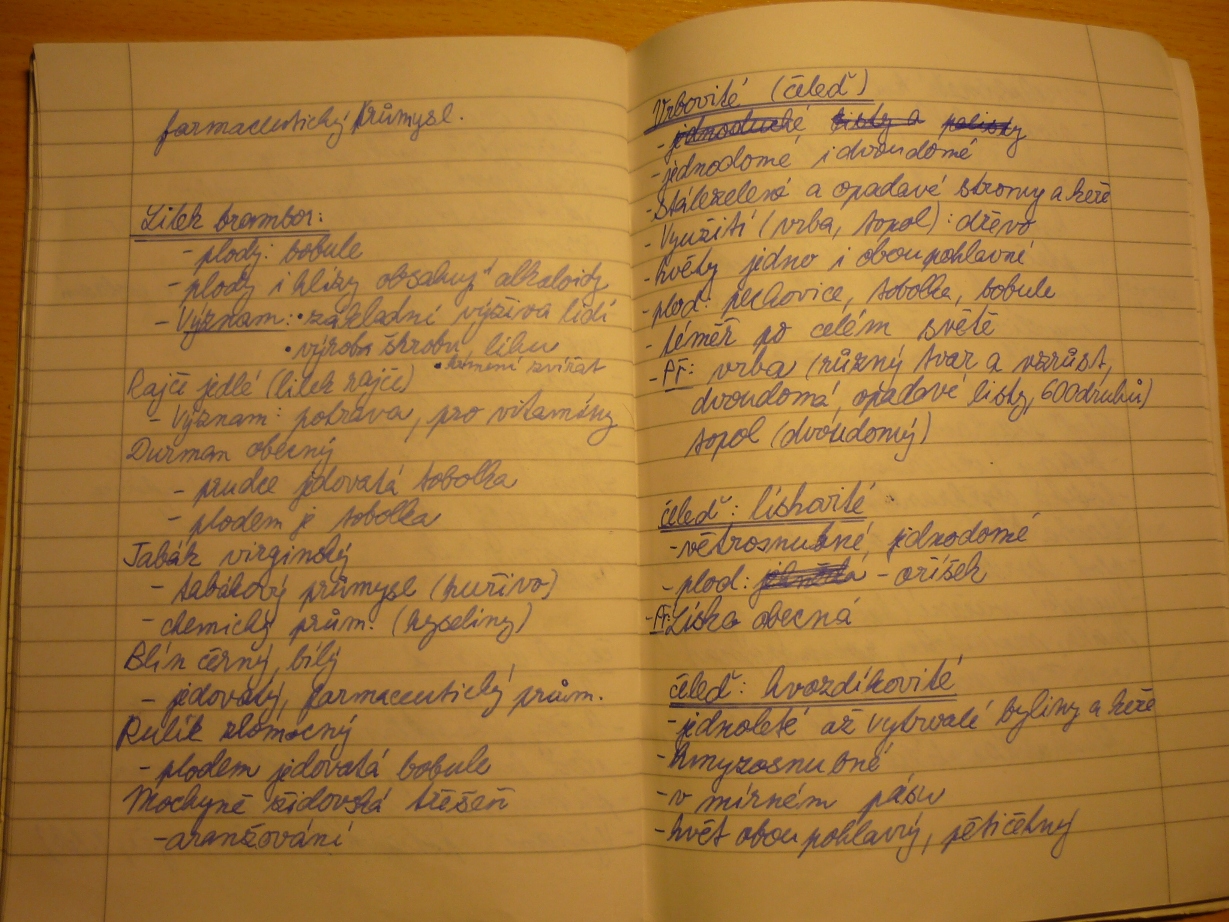 farmaceutický průmysl.
Lilek brambor:
- plody: bobule
- plody i hlízy obsahují alkaloidy
- Význam: • základní výživa lidí
• výroba škrobu lihu
• krmení zvířat
Rajče jedlé (lilek rajče)
- Význam: potrava, pro vitamíny
Durman obecný
- prudce jedovatá tobolka
- plodem je tobolka
Tabák virginský
- tabákový průmysl (kuřivo)
- chemický prům. (kyseliny)
Blín černý, bílý
- jedovatý, farmaceutický prům.
Rulík zlomocný
- plodem jedovatá bobule
Mochyně židovská třešeň
- aranžování
Vrbovité (čeleď)
- jednoduché listy a palisty
- jednodomé i dvoudomé
- Stálezelené a opadavé stromy a keře
- Využití (vrba, topol): dřevo
- květy jedno i oboupohlavní
- plod: pechovice, tobolka, bobule
- téměř po celém světě
- PŘ: vrba (různý tvar a vzrůst,
dvoudomá, opadavé listy, 600 druhů)
topol (dvoudomý)
čeleď: lískovité
- větrosnubné, jednodomé
- plod: - oříšek
- PŘ: Líska obecná
čeleď: hvozdíkovité
- jednoleté až vytrvalé byliny a keře
- hmyzosnubné
- v mírném pásu
- květ oboupohlavný, pětičetný